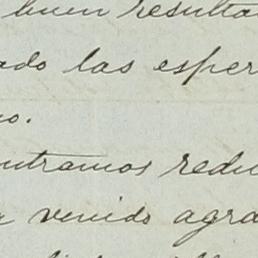 buen resulta
ado las esper
o.
ntramos redu
venido agra